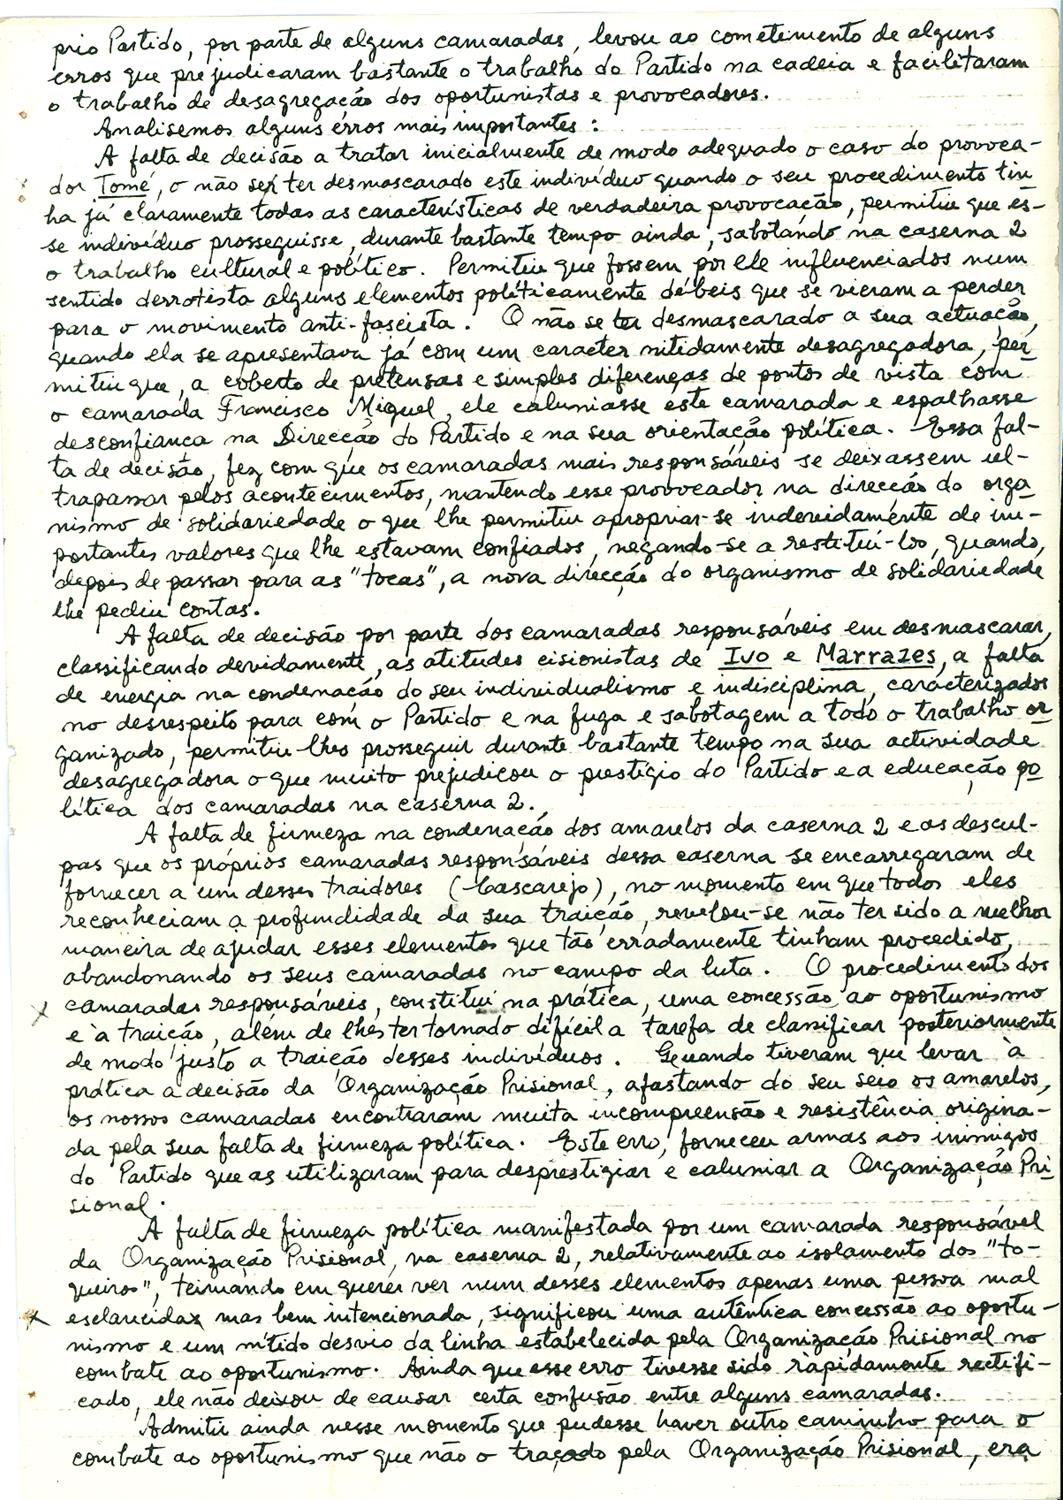 prio Partido, por parte de alguns camaradas, levou ao cometimento de alguns
erros que prejudicaram bastante o trabalho do Partido na cadeia e facilitaram
o trabalho de desagregação dos oportunistas e provocadores.
Analisemos alguns erros mais importantes:
A falta de decisão a tratar inicialmente de modo adequado o caso do provoca-
dor Tomé, o não se ter desmascarado este indivíduo quando o seu procedimento tin-
ha já claramente todas as características de verdadeira provocação, permitiu que es-
se indivíduo prosseguisse, durante bastante tempo ainda, sabotando na caserna 2
o trabalho cultural e político. Permitiu que fossem por ele influenciados num
sentido derrotista alguns elementos políticamente débeis que se vieram a perder
para o movimento anti-fascista. O não se ter desmascarado a sua actuação,
quando ela se apresentava já com um caracter nitidamente desagregadora, per
mitiu que, a coberto de pretensas e simples diferenças de pontos de vista com
o camarada Francisco Miguel, ele caluniasse este camarada e espalhasse
desconfiança na Direcção do Partido e na sua orientação política. Essa fal-
ta de decisão, fez com que os camaradas mais responsáveis se deixassem ul-
trapassar pelos acontecimentos, mantendo esse provocador na direcção do orga
nismo de solidariedade o que lhe permitiu apropriar-se indevidamente de im-
portantes valores que lhe estavam confiados, negando-se a restituí-los, quando,
depois de passar para as "tocas", a nova direcção do organismo de solidariedade
lhe pediu contas.
A falta de decisão por parte dos camaradas responsáveis em desmascarar,
classificando devidamente, as atitudes cisionistas de Ivo e Marrazes, a falta
de energia na condenação do seu individualismo e indisciplina, caracterizados
no desrespeito para com o Partido e na fuga e sabotagem a todo o trabalho or
ganizado, permitiu-lhes prosseguir durante bastante tempo na sua actividade
desagregadora o que muito prejudicou o prestígio do Partido e a educação po
lítica dos camaradas na caserna 2.
A falta de firmeza na condenação dos amarelos da caserna 2 e as descul-
pas que os próprios camaradas responsáveis dessa caserna se encarregaram de
fornecer a um desses traidores (Cascarejo), no momento em que todos eles
reconheciam a profundidade da sua traição, revelou-se não ter sido a melhor
maneira de ajudar esses elementos que tão erradamente tinham procedido,
abandonando os seus camaradas no campo da luta. O procedimento dos
camaradas responsáveis, constitui na prática, uma concessão ao oportunismo
e à traição, além de lhes ter tornado difícil a tarefa de classificar posteriormente
de modo justo a traição desses indivíduos. Quando tiveram que levar à
prática a decisão da Organização Prisional, afastando do seu seio os amarelos,
os nossos camaradas encontraram muita incompreensão e resistência origina-
da pela sua falta de firmeza política. Este erro, forneceu armas aos inimigos
do Partido que as utilizaram para desprestigiar e caluniar a Organização Pri-
sional.
A falta de firmeza política manifestada por um camarada responsável
da Organização Prisional, na caserna 2, relativamente ao isolamento dos "to-
queiros", teimando em querer ver num desses elementos apenas uma pessoa mal
esclarecida mas bem intencionada, significou uma autêntica concessão ao oportu-
nismo e um nítido desvio da linha estabelecida pela Organização Prisional no
combate ao oportunismo. Ainda que esse erro tivesse sido ràpidamente rectifi-
cado, ele não deixou de causar certa confusão entre alguns camaradas.
Admitir ainda nesse momento que pudesse haver outro caminho para o
combate ao oportunismo que não o traçado pela Organização Prisional, era